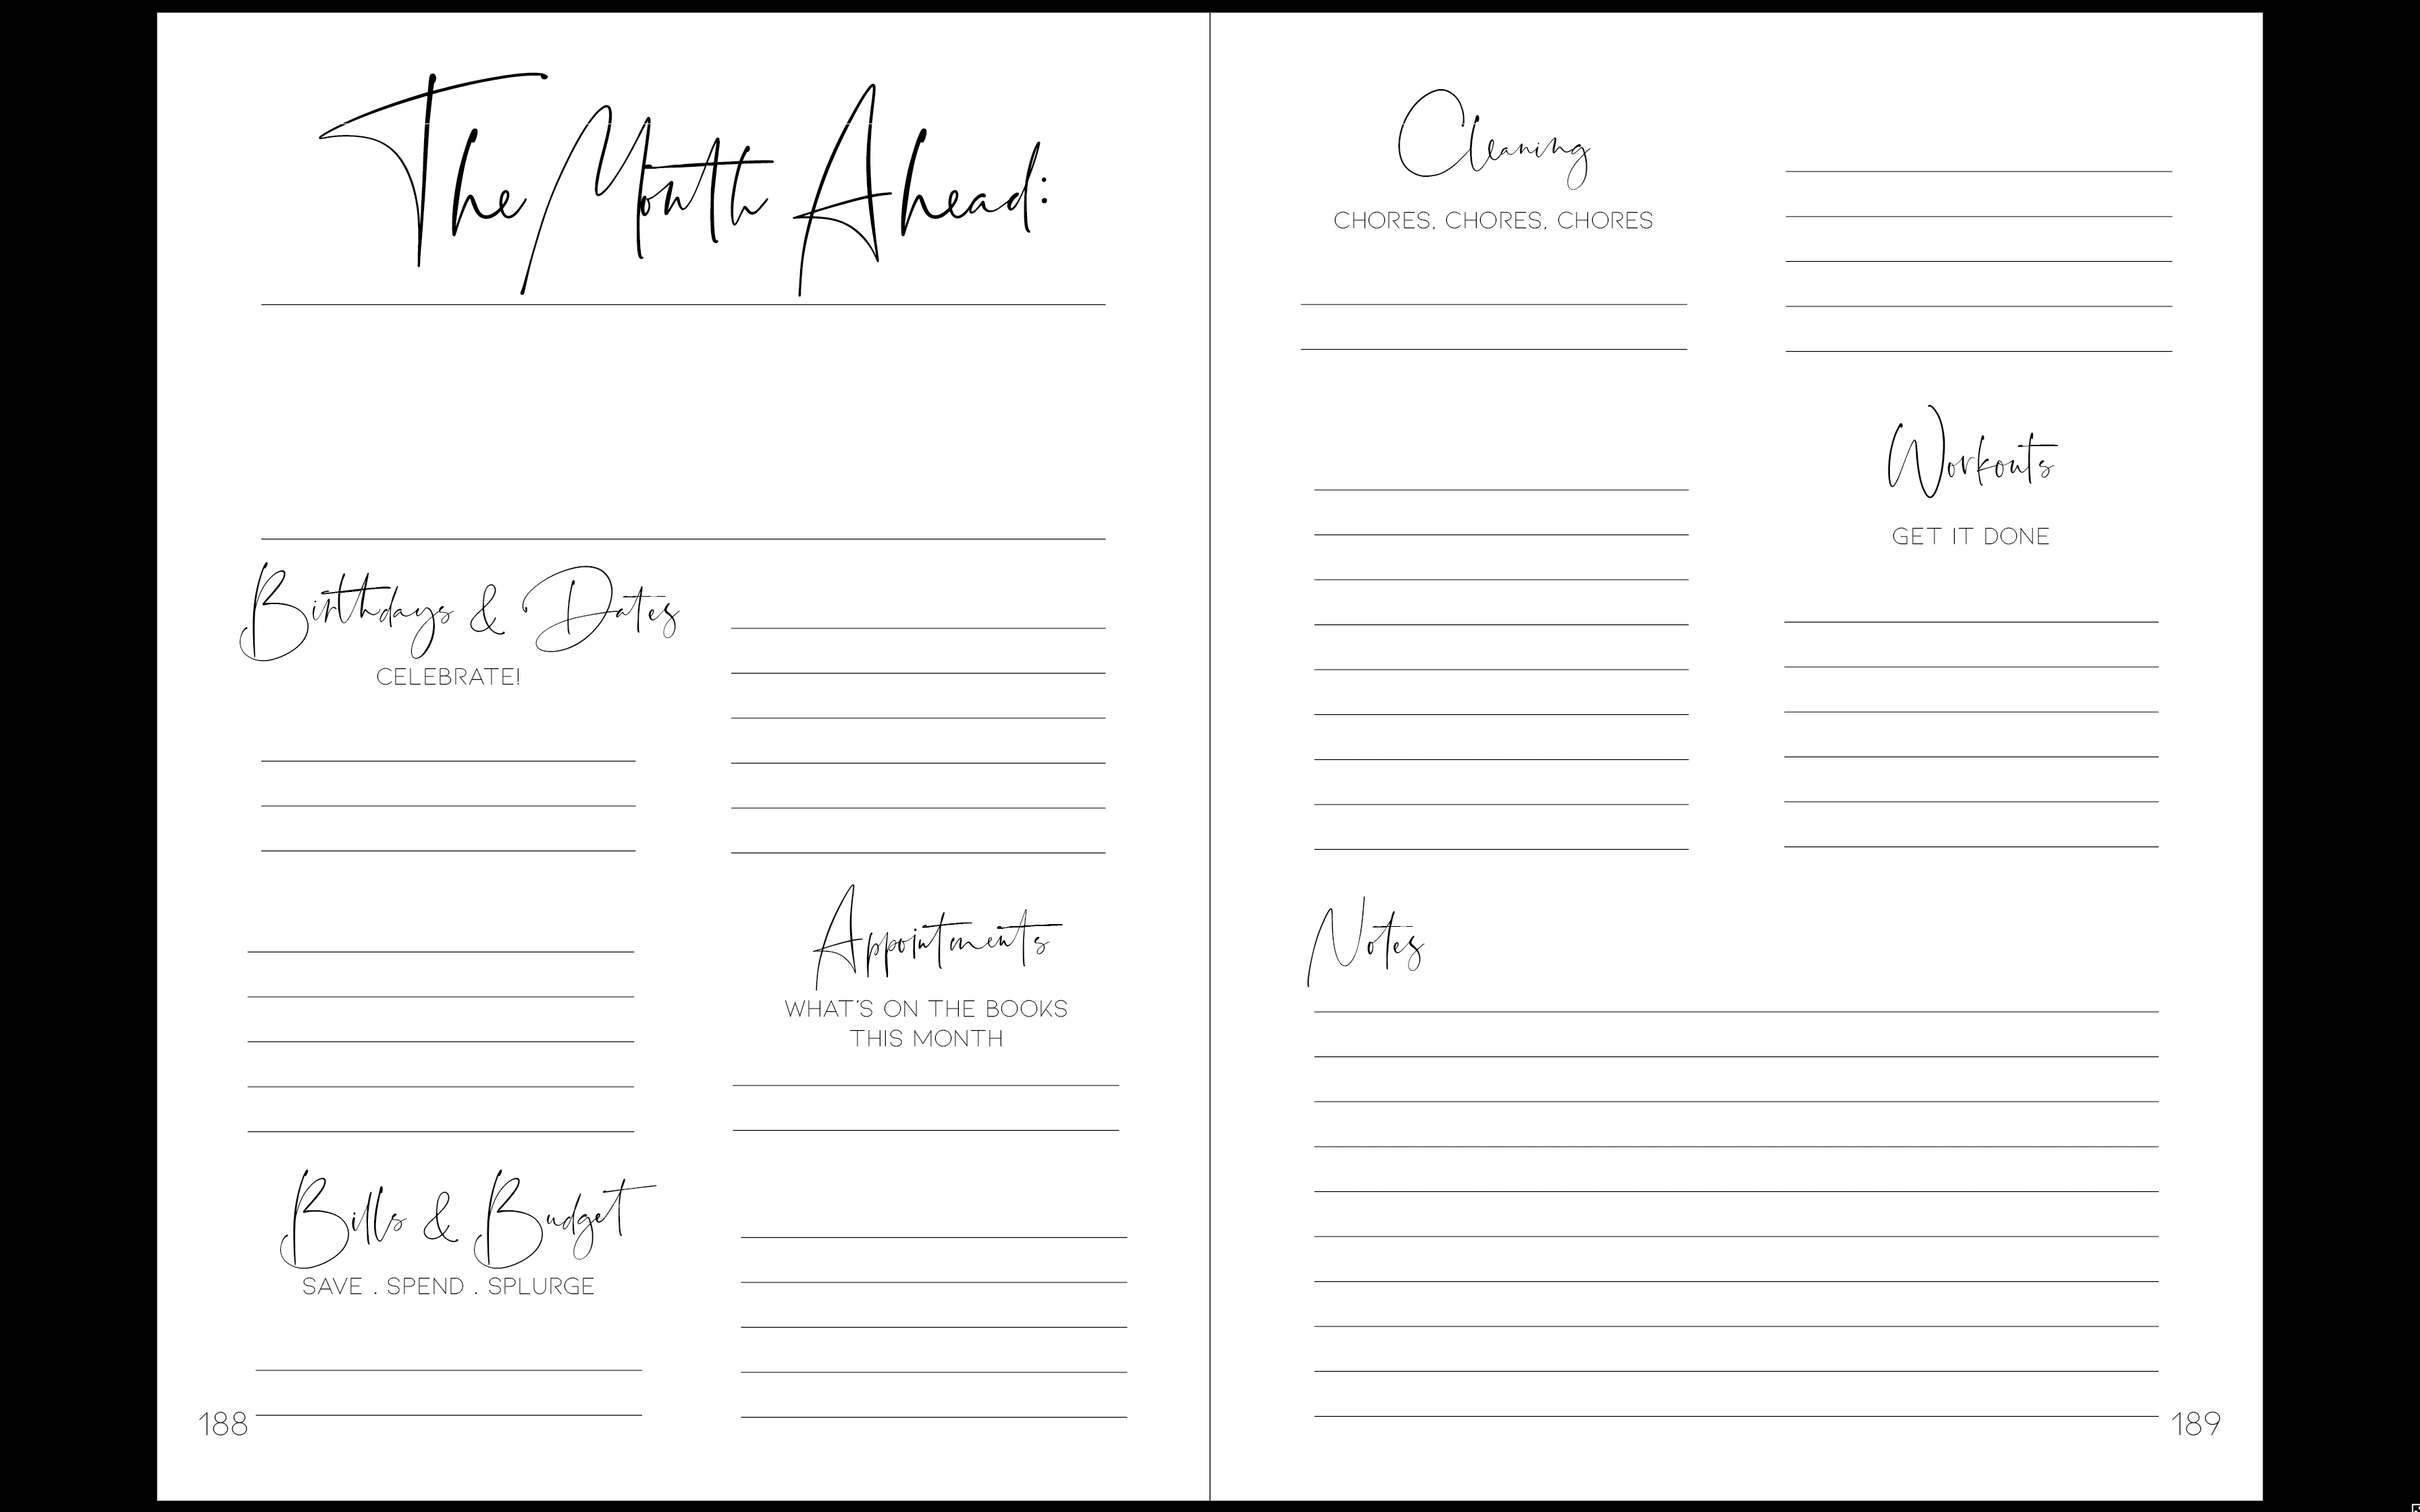 The Month Ahead:
Birthdays & Dates
CELEBRATE!
Appointments
WHAT'S ON THE BOOKS
THIS MONTH
Bills & Budget
SAVE . SPEND . SPLURGE
188
Cleaning
CHORES, CHORES, CHORES
Workouts
GET IT DONE
Notes
189